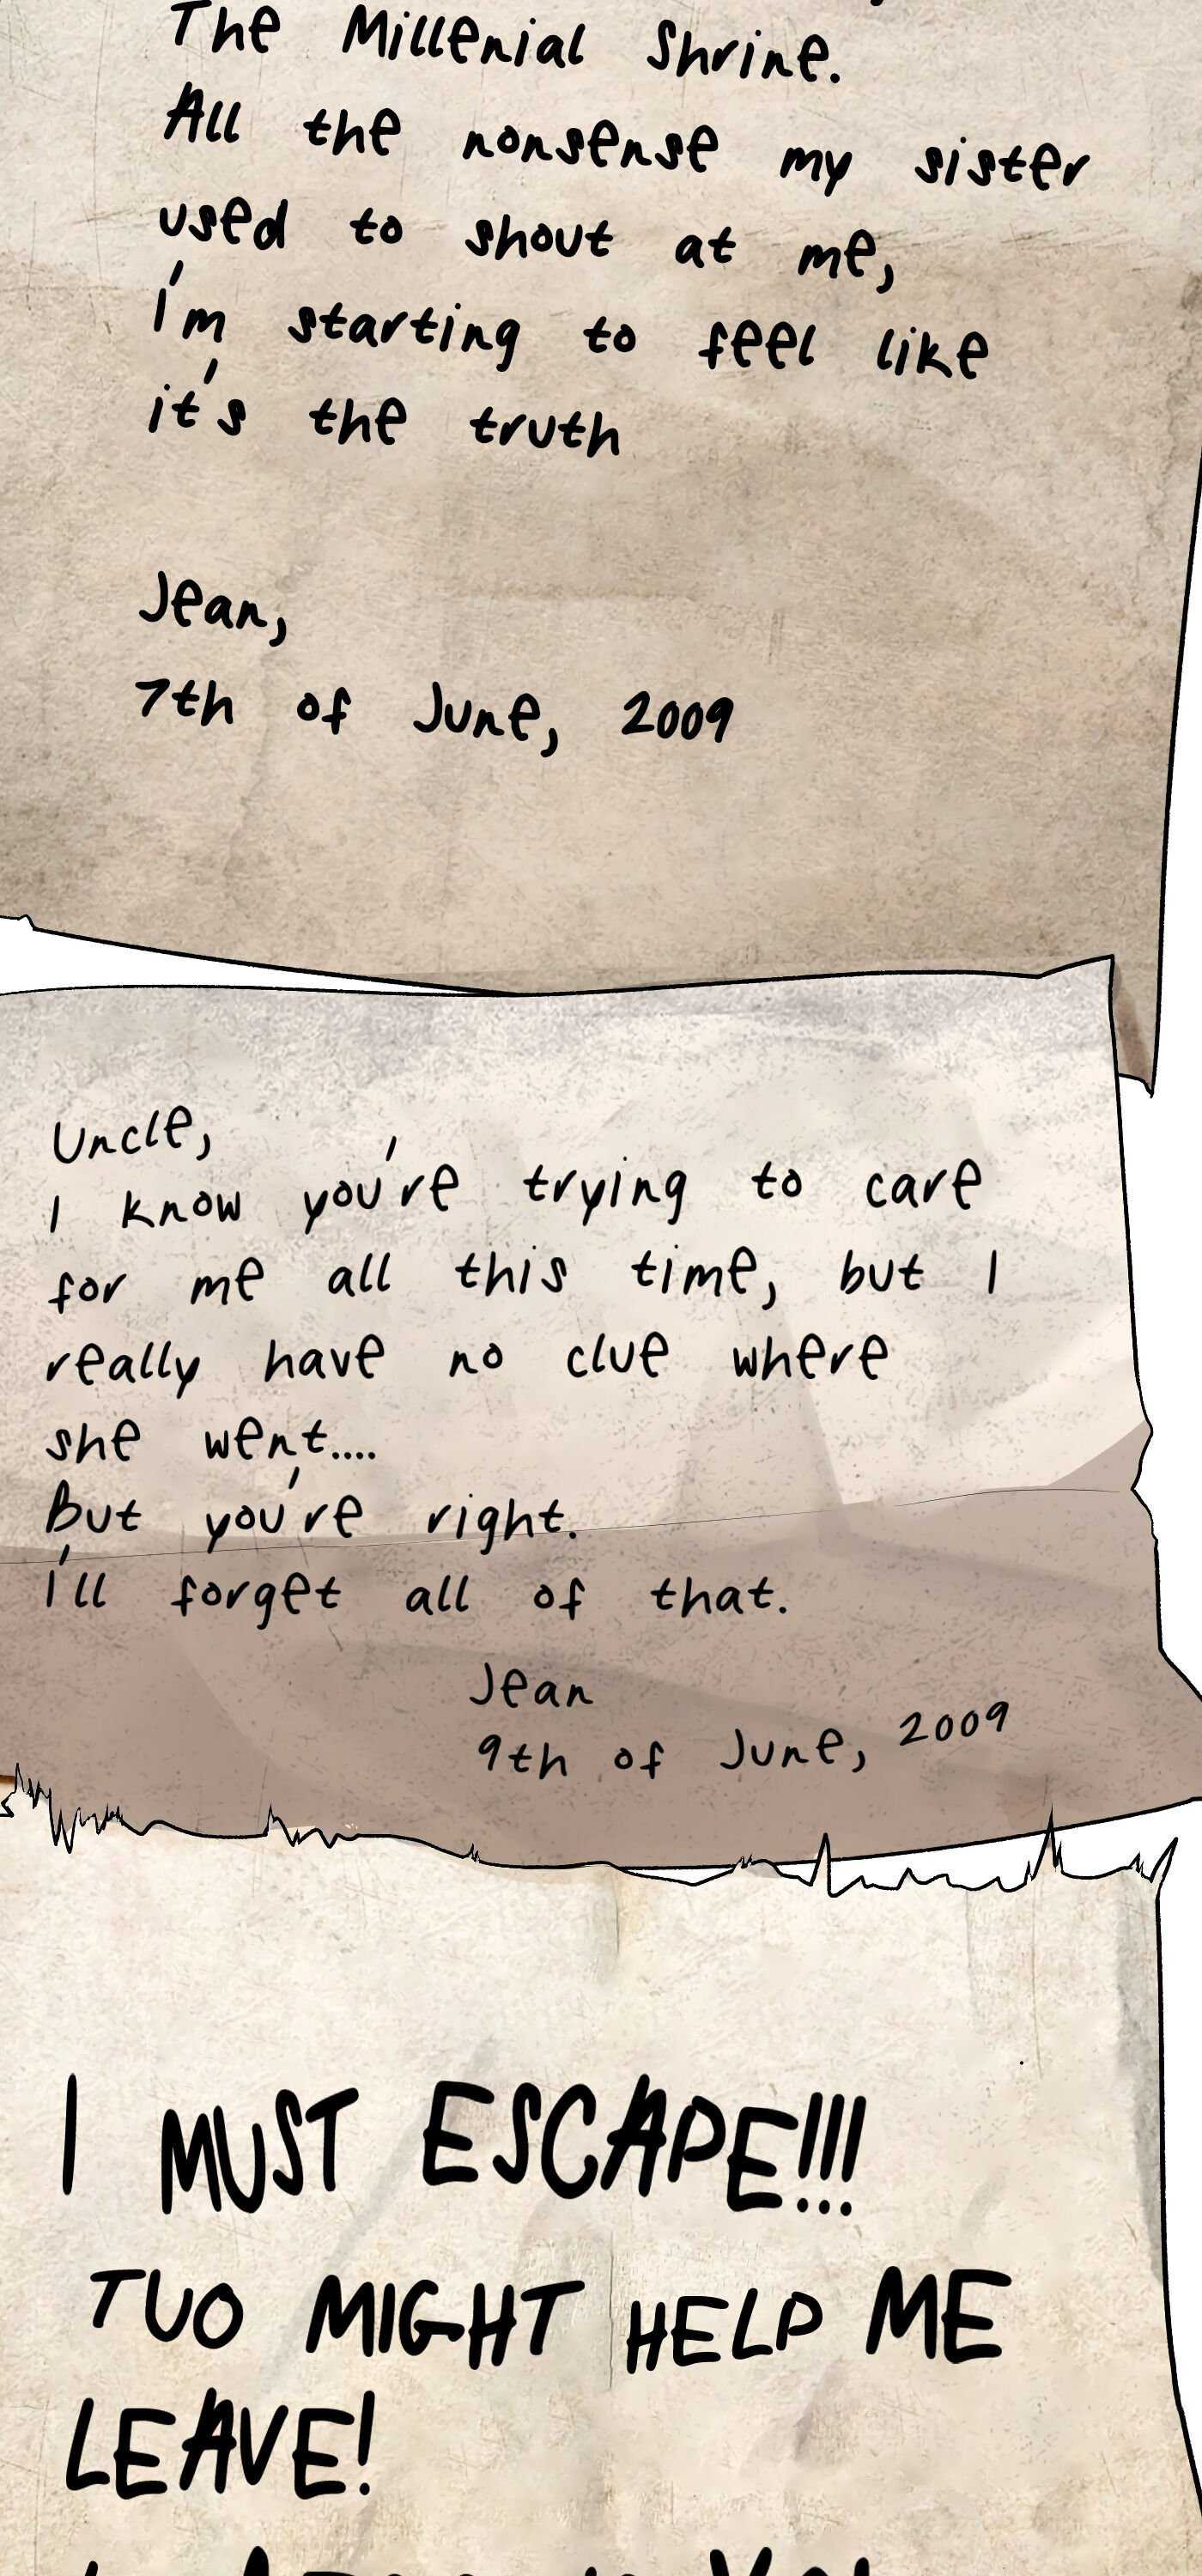 The Millenial Shrine.
All the nonsense my sister
used to shout at me,
I'm starting to feel like
it's the truth
Jean,
7th of June, 2009
Uncle,
I know you're trying to care
for me all this time, but I
really have no clue where
she went....
But you're right.
I'll forget all of that.
Jean
9th of June, 2009
I MUST ESCAPE!!!
TUO MIGHT HELP ME
LEAVE!